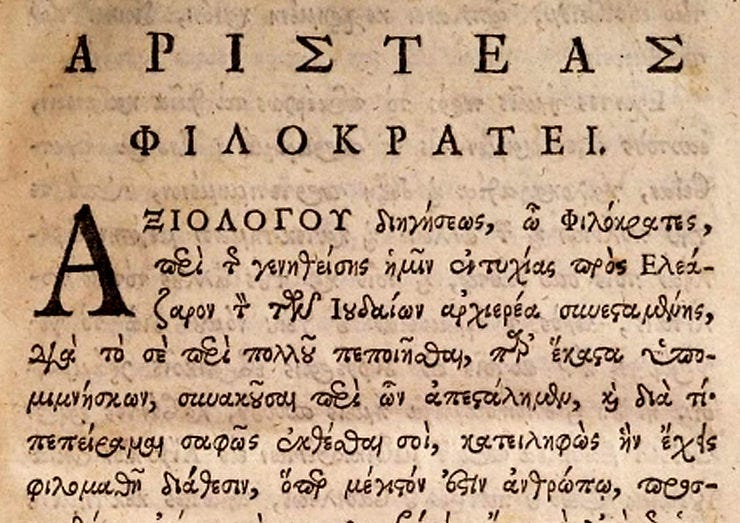 ΑΡΙΣΤΕΑΣ
ΦΙΛΟΚΡΑΤΕΙ.
ΑΞΙΟΛΟΓΟΥ διηγήσεως, ὦ Φιλόκρατες,
περὶ τῆς γενηθείσης ἡμῖν ἐντυχίας πρὸς Ελεά-
ζαρον τὸν τῶν Ιουδαίων ἀρχιερέα συνεσταμένης,
διὰ τὸ σὲ περὶ πολλοῦ πεποιῆσθαι, παρ' ἕκαστα ὑπο-
μιμνήσκων, συνακοῦσαι περὶ ὧν ἀπεστάλημεν, καὶ διὰ τί·
πεπείραμαι σαφῶς ἐκθέσθαι σοὶ, κατειληφὼς ἣν ἔχεις
φιλομαθῆ διάθεσιν, ὅπερ μέγιστόν ἐστιν ἀνθρώπῳ, προσ-